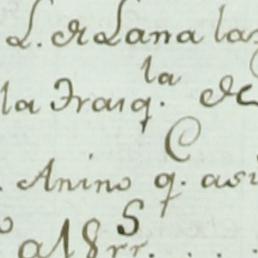 L. de Lana las
la Fraiq.la de
Anino q.C asi
al 8 rr.S . . .